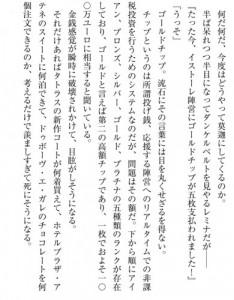 何だ何だ、今度はどうやって莫迦にしてくるのか。
半ば呆れつつ半目になってダンケルベルトを見やるレミナだが――
『たった今、イストーレ陣営にゴールドチップが五枚支払われました！』
「うっそ」
ゴールドチップ。流石にその言葉には目を丸くせざるを得ない。
チップというのは所謂投げ銭、応援する陣営へのリアルタイムでの非課
税投資を行うためのシステムなのだが、問題はその額だ。下から順にアイ
アン、ブロンズ、シルバー、ゴールド、プラチナの五種類のランクが存在
しており、ゴールドと言えば第二の高額チップであり、一枚でおよそ一〇
〇万ユーロに相当すると聞いている。
金銭感覚が瞬時に破壊されかけ、目眩がしそうになる。
それだけあればタトラスの新作コートが何着買えて、ホテルプラザ・ア
テネのスイートに何泊できて、ドゥボーヴ・エ・ガレのチョコレートを何
個注文できるのか、考えるだけで羨ましすぎて死にそうになる。